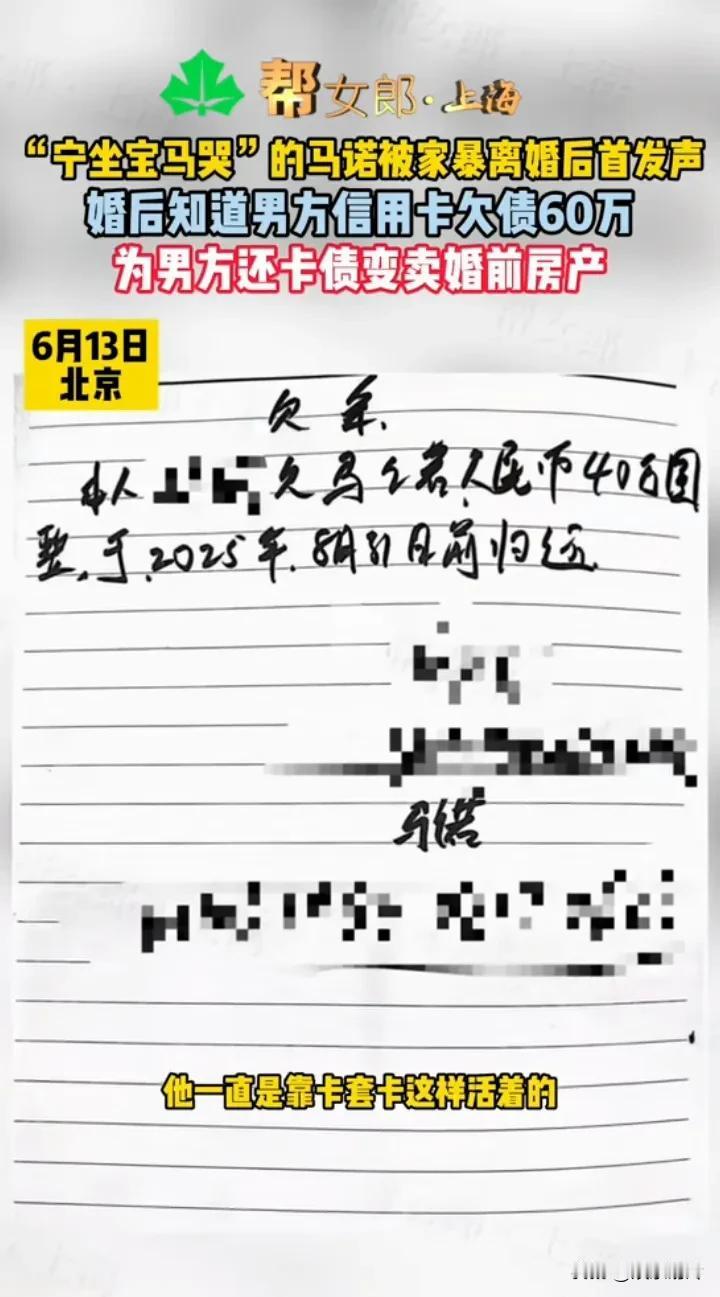 帮女郎·上海
“宁坐宝马哭”的马诺被家暴离婚后首发声
婚后知道男方信用卡欠债60万
为男方还卡债变卖婚前房产
6月13日
北京
欠条
本人 欠马 人民币40万圆
整,于2025年8月31日前归还
马诺
他一直是靠卡套卡这样活着的